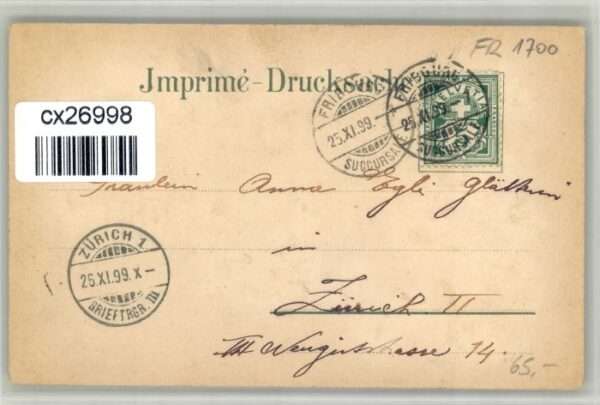 FR 1700
Imprimé - Drucksache
FRIBOURG
25.XI.99.
SUCCURSALE
FRIBOURG
25.XI.99.
SUCCURSALE
HELVETIA
cx26998
Fräulein Anna Egli Glätterin
in
ZÜRICH 1
26.XI.99.X-
BRIEFTRGR. III
Zürich II
14.
65,-